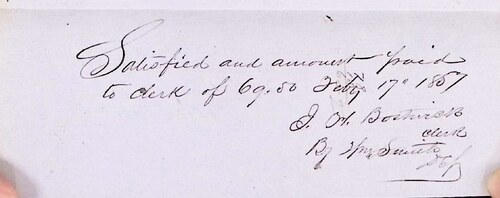 Satisfied and amount paid
to clerk of 69.50 Feby 17 1857
J. H. Bostwick
clerk
By Wm Smith
Dep